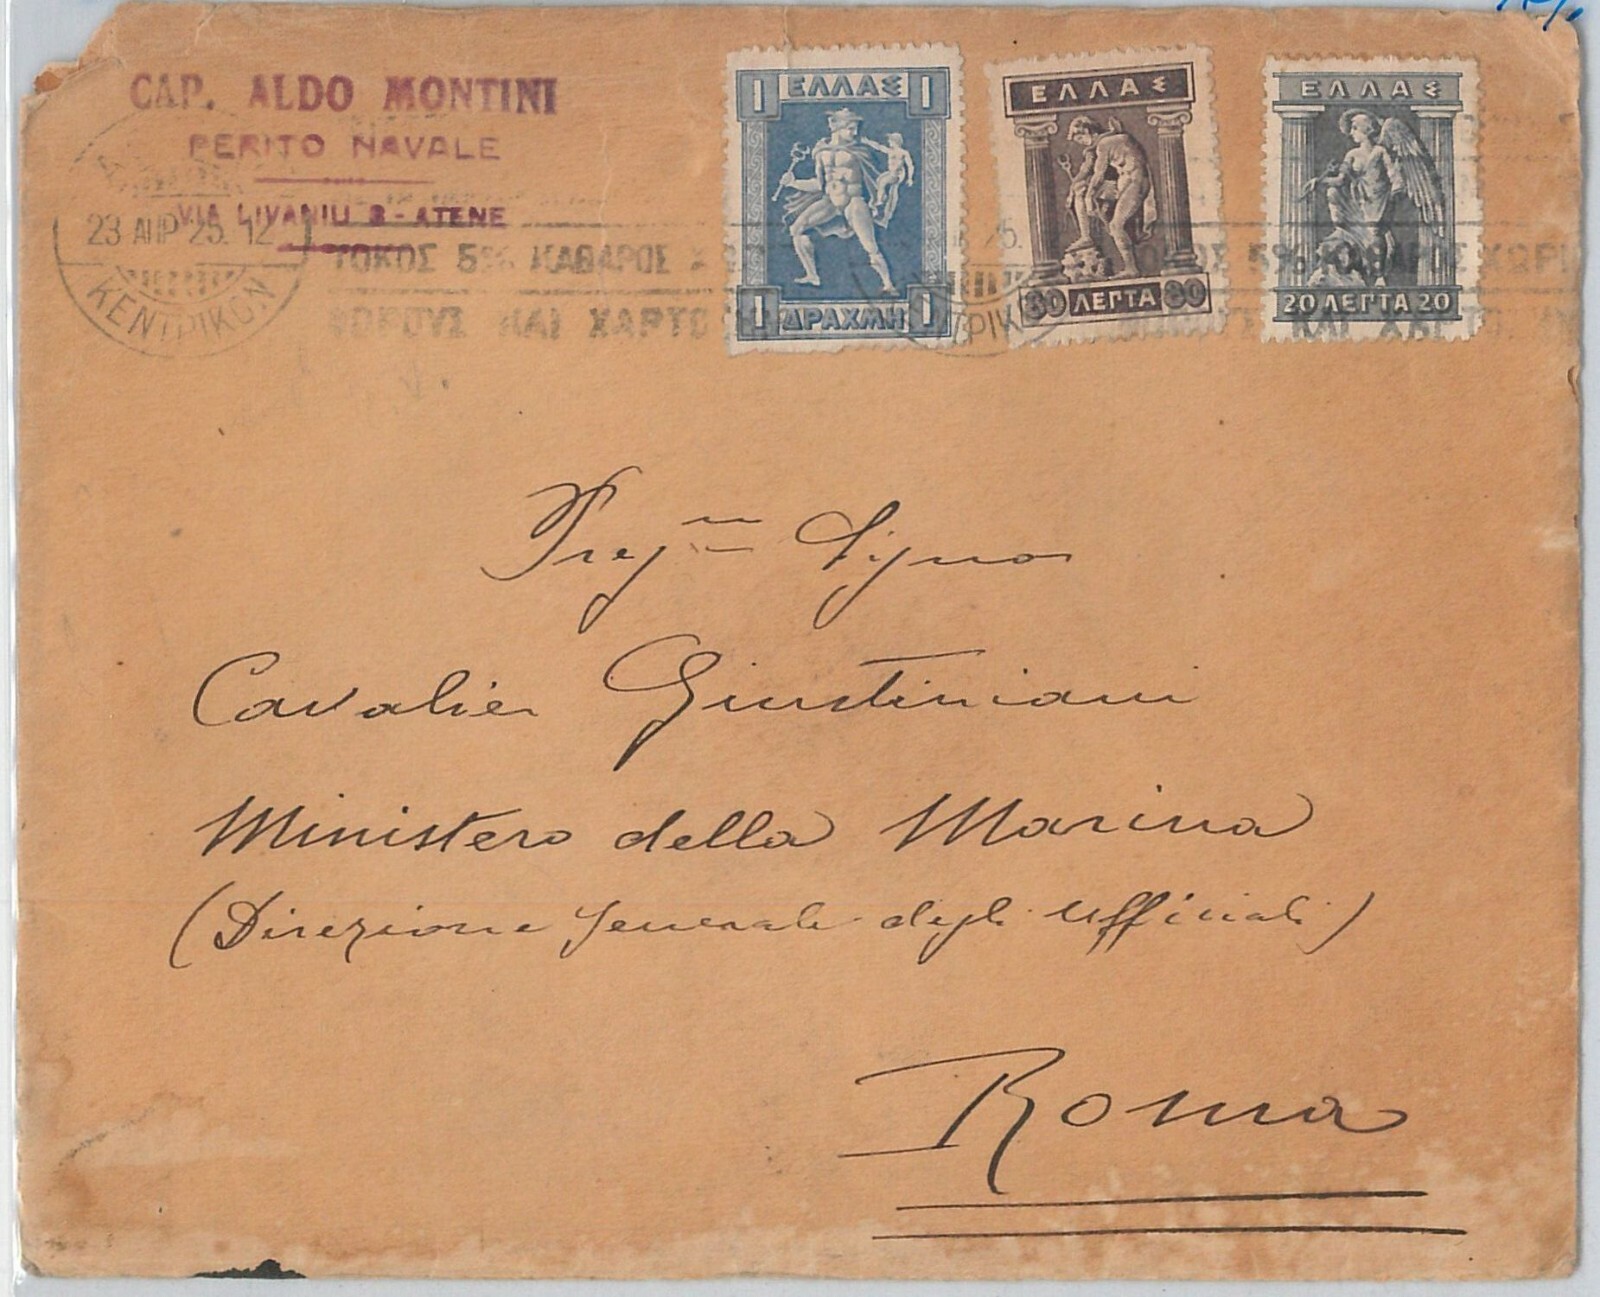 CAP. ALDO MONTINI
PERITO NAVALE
VIA LIVANIU 8 - ATENE
23 ΑΠΡ 25. 12
ΚΕΝΤΡΙΚΟΝ
ΤΟΚΟΣ 5% ΚΑΘΑΡΟΣ
ΦΟΡΟΥΣ ΚΑΙ ΧΑΡΤΟ
1 ΕΛΛΑΣ 1
1 ΔΡΑΧΜΗ 1
ΕΛΛΑΣ
80 ΛΕΠΤΑ 80
ΕΛΛΑΣ
20 ΛΕΠΤΑ 20
5% ΚΑΘΑΡΟΣ ΧΩΡΙ
ΚΑΙ ΧΑΡΤΟ
Preg Signo
Cavalier Giustiniani
Ministero della Marina
(Direzione Generale degli Ufficiali)
Roma